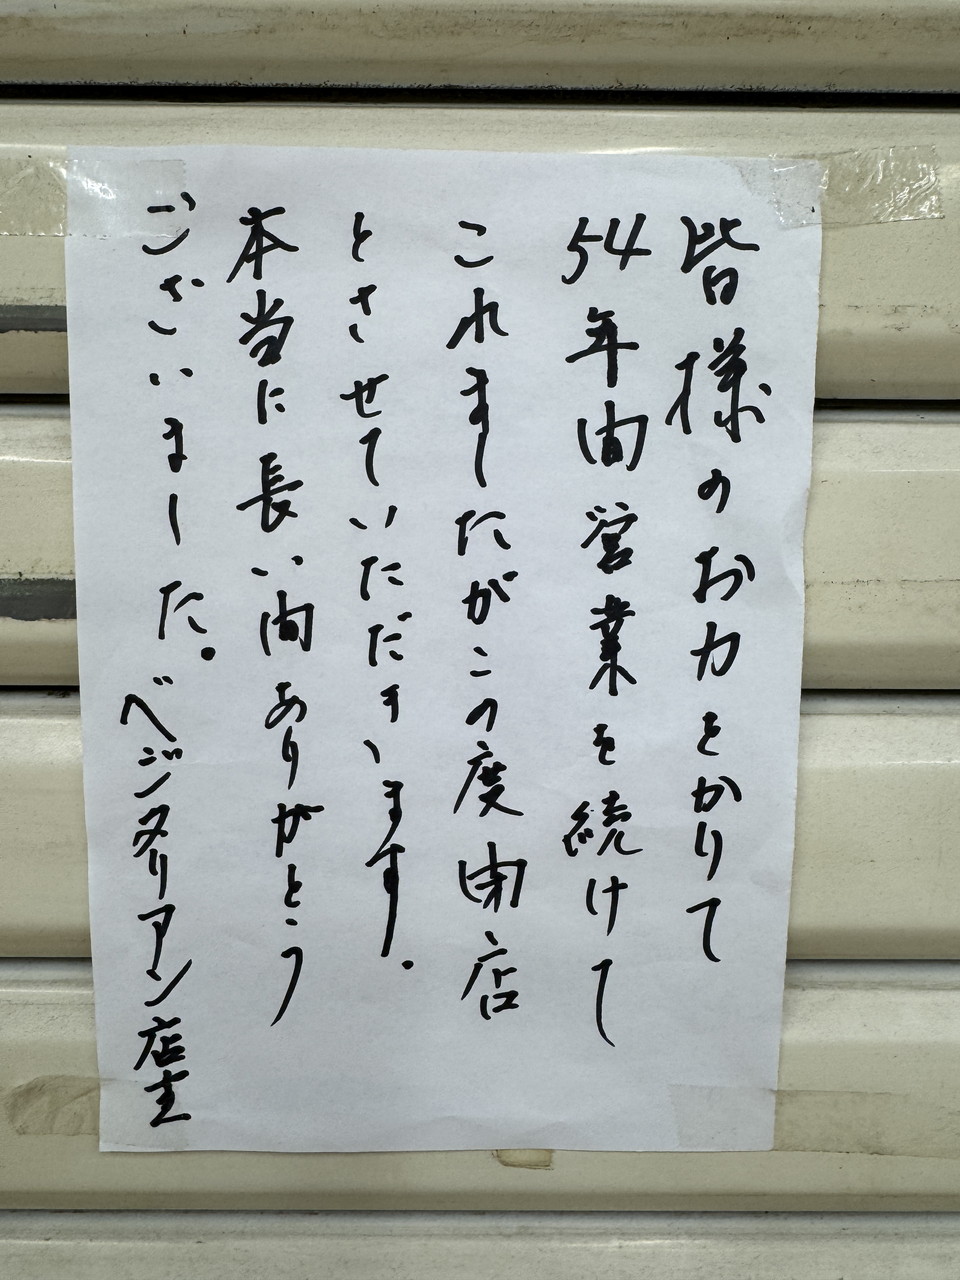 皆様のお力をかりて
54年間営業を続けて
これましたがこの度閉店
とさせていただきます.
本当に長い間ありがとう
ございました。ベジタリアン店主